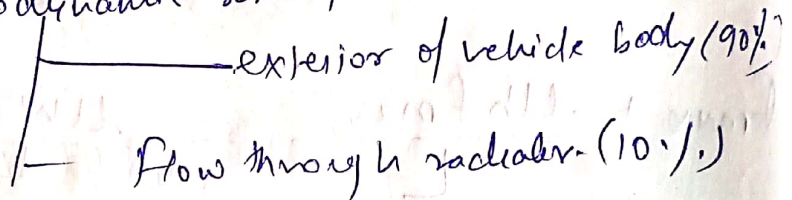 exterior of vehicle body (90%)
Flow through radiator. (10%)